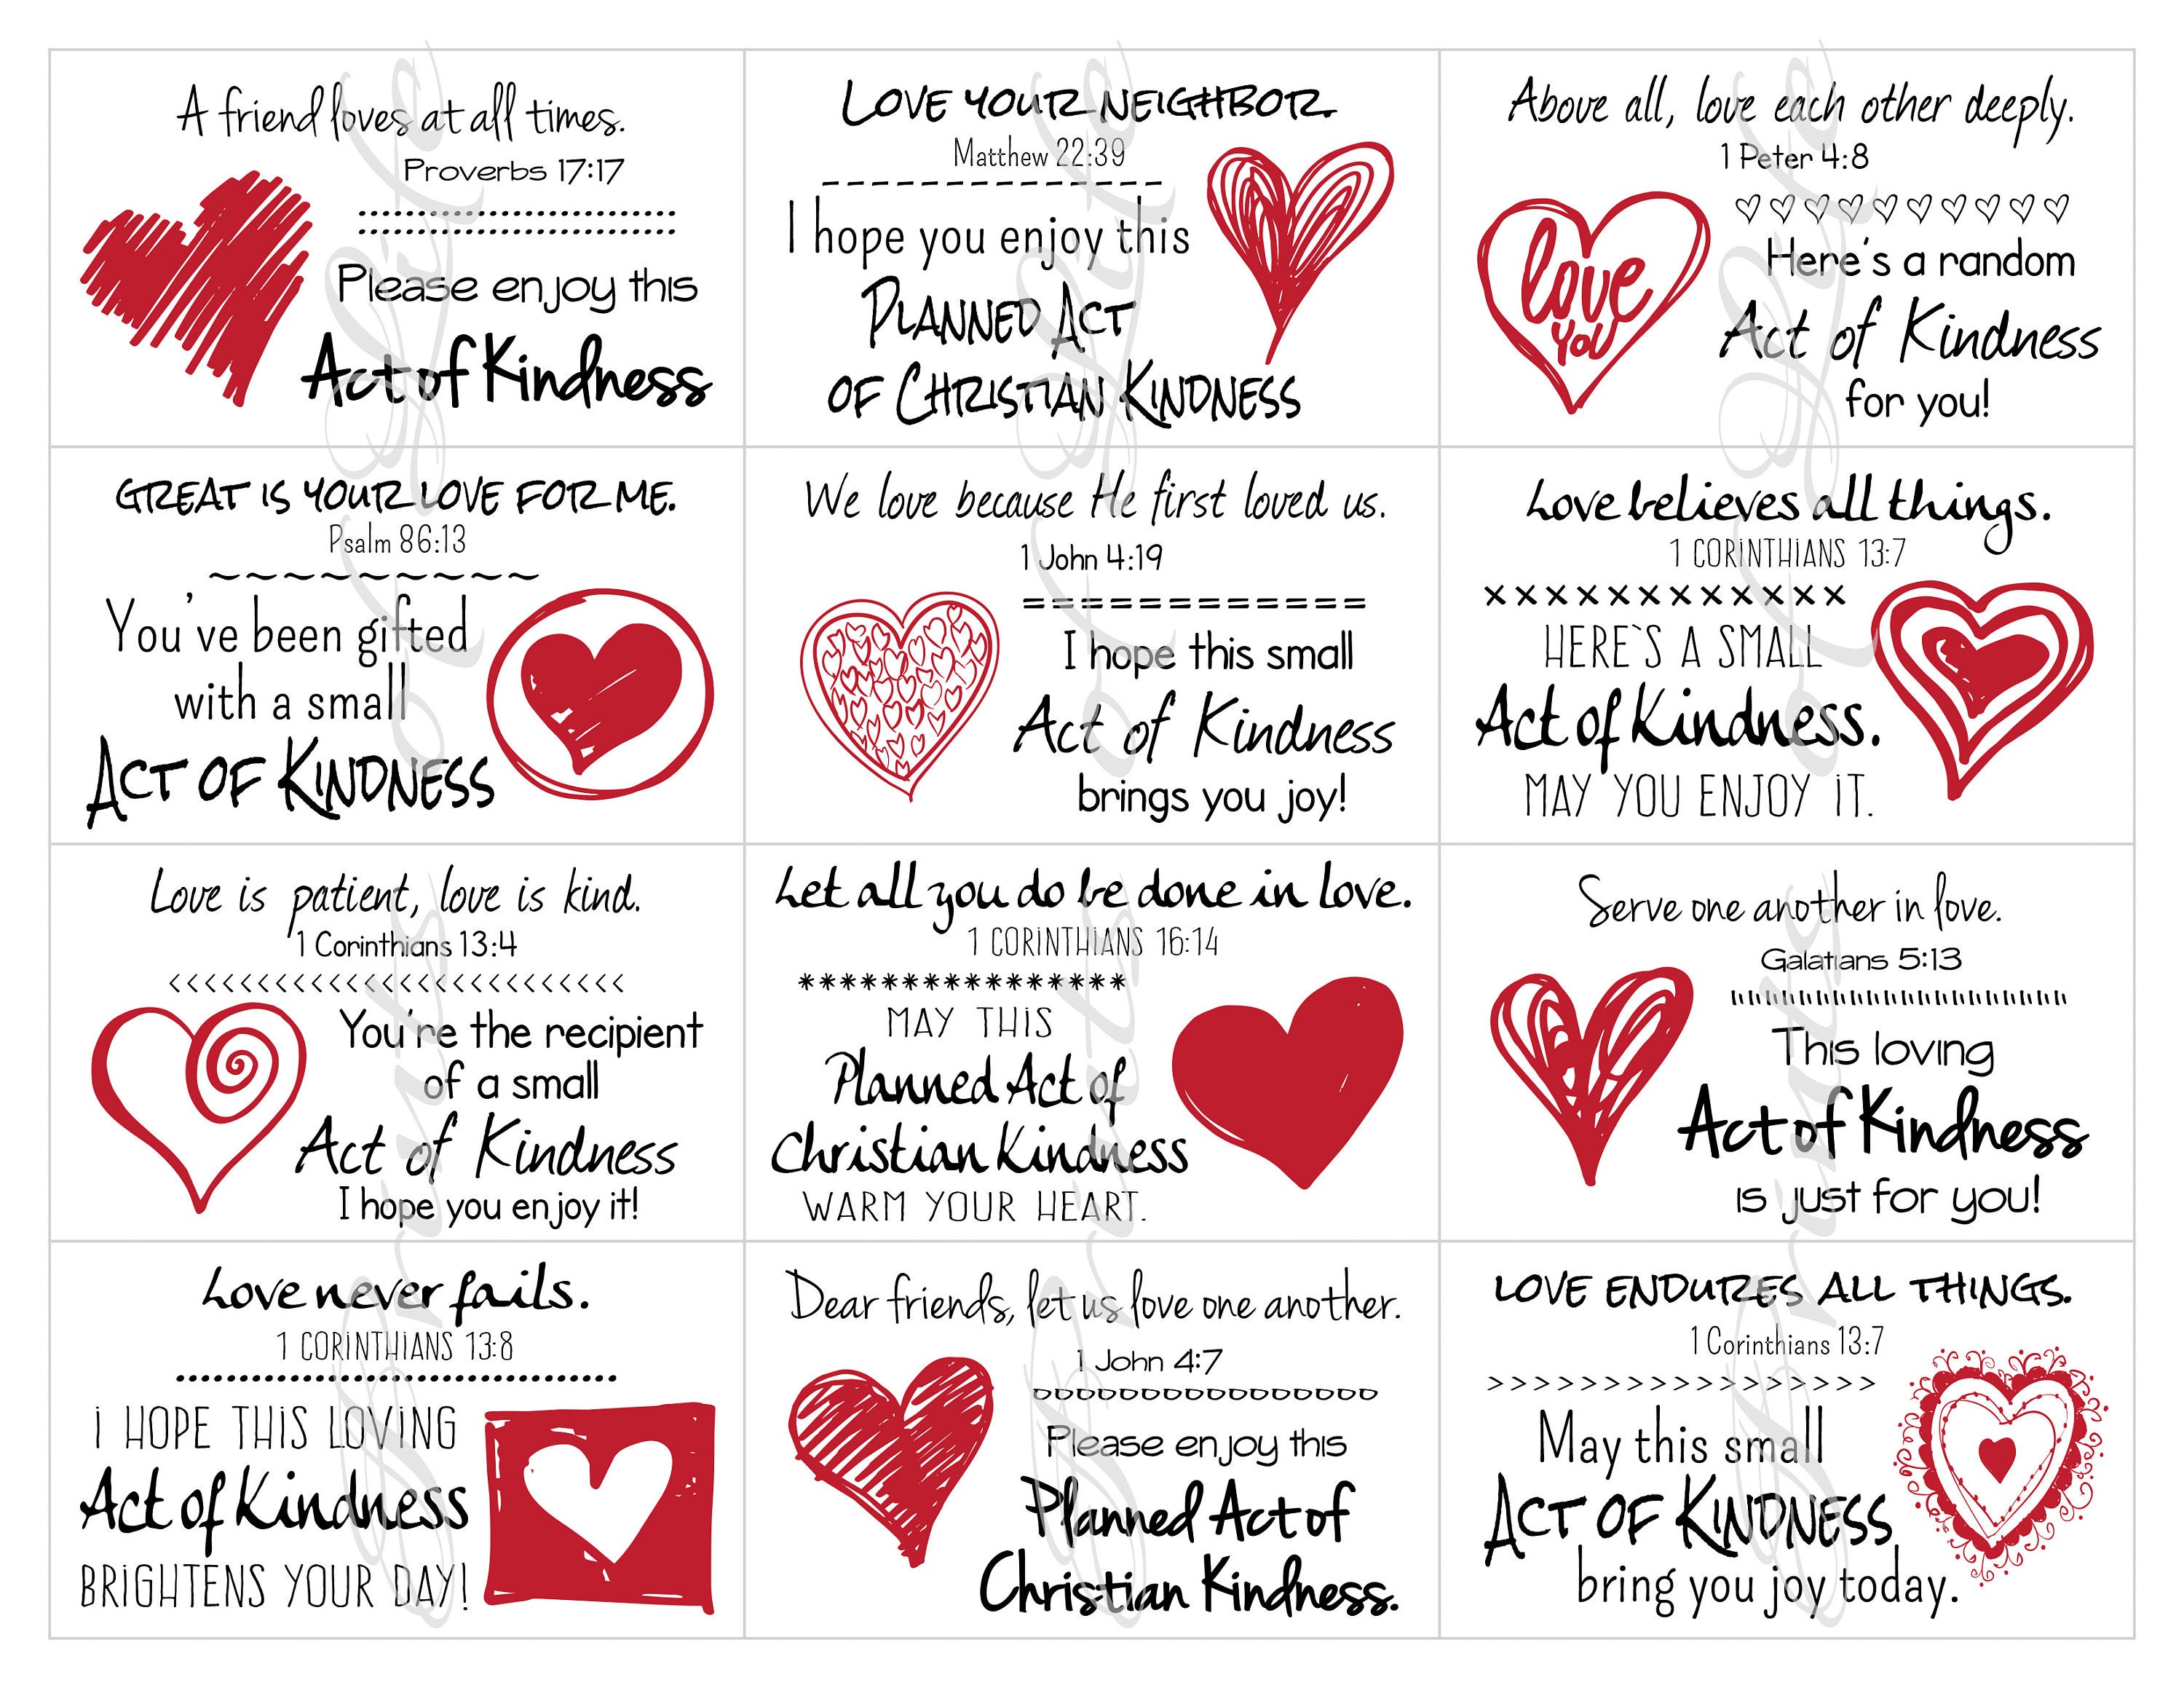 A friend loves at all times.
Proverbs 17:17
Please enjoy this
Act of Kindness
LOVE YOUR NEIGHBOR.
Matthew 22:39
I hope you enjoy this
PLANNED ACT
OF CHRISTIAN KINDNESS
Above all, love each other deeply.
1 Peter 4:8
love
YOU
Here's a random
Act of Kindness
for you!
GREAT IS YOUR LOVE FOR ME.
Psalm 86:13
You've been gifted
with a small
ACT OF KINDNESS
We love because He first loved us.
1 John 4:19
============
I hope this small
Act of Kindness
brings you joy!
Love believes all things.
1 CORINTHIANS 13:7
xxxxxxxxxxxx
HERE`S A SMALL
Act of Kindness.
MAY YOU ENJOY IT.
Love is patient, love is kind.
1 Corinthians 13:4
You're the recipient
of a small
Act of Kindness
I hope you enjoy it!
Let all you do be done in love.
1 CORINTHIANS 16:14
****************
MAY THIS
Planned Act of
Christian Kindness
WARM YOUR HEART.
Serve one another in love.
Galatians 5:13
This loving
Act of Kindness
is just for you!
Love never fails.
1 CORINTHIANS 13:8
I HOPE THIS LOVING
Act of Kindness
BRIGHTENS YOUR DAY!
Dear friends, let us love one another.
1 John 4:7
Please enjoy this
Planned Act of
Christian Kindness.
LOVE ENDURES ALL THINGS.
1 Corinthians 13:7
>>>>>>>>>>>>>>>>>>
May this small
ACT OF KINDNESS
bring you joy today.
Prints of Life
Prints of Life
Prints of Life